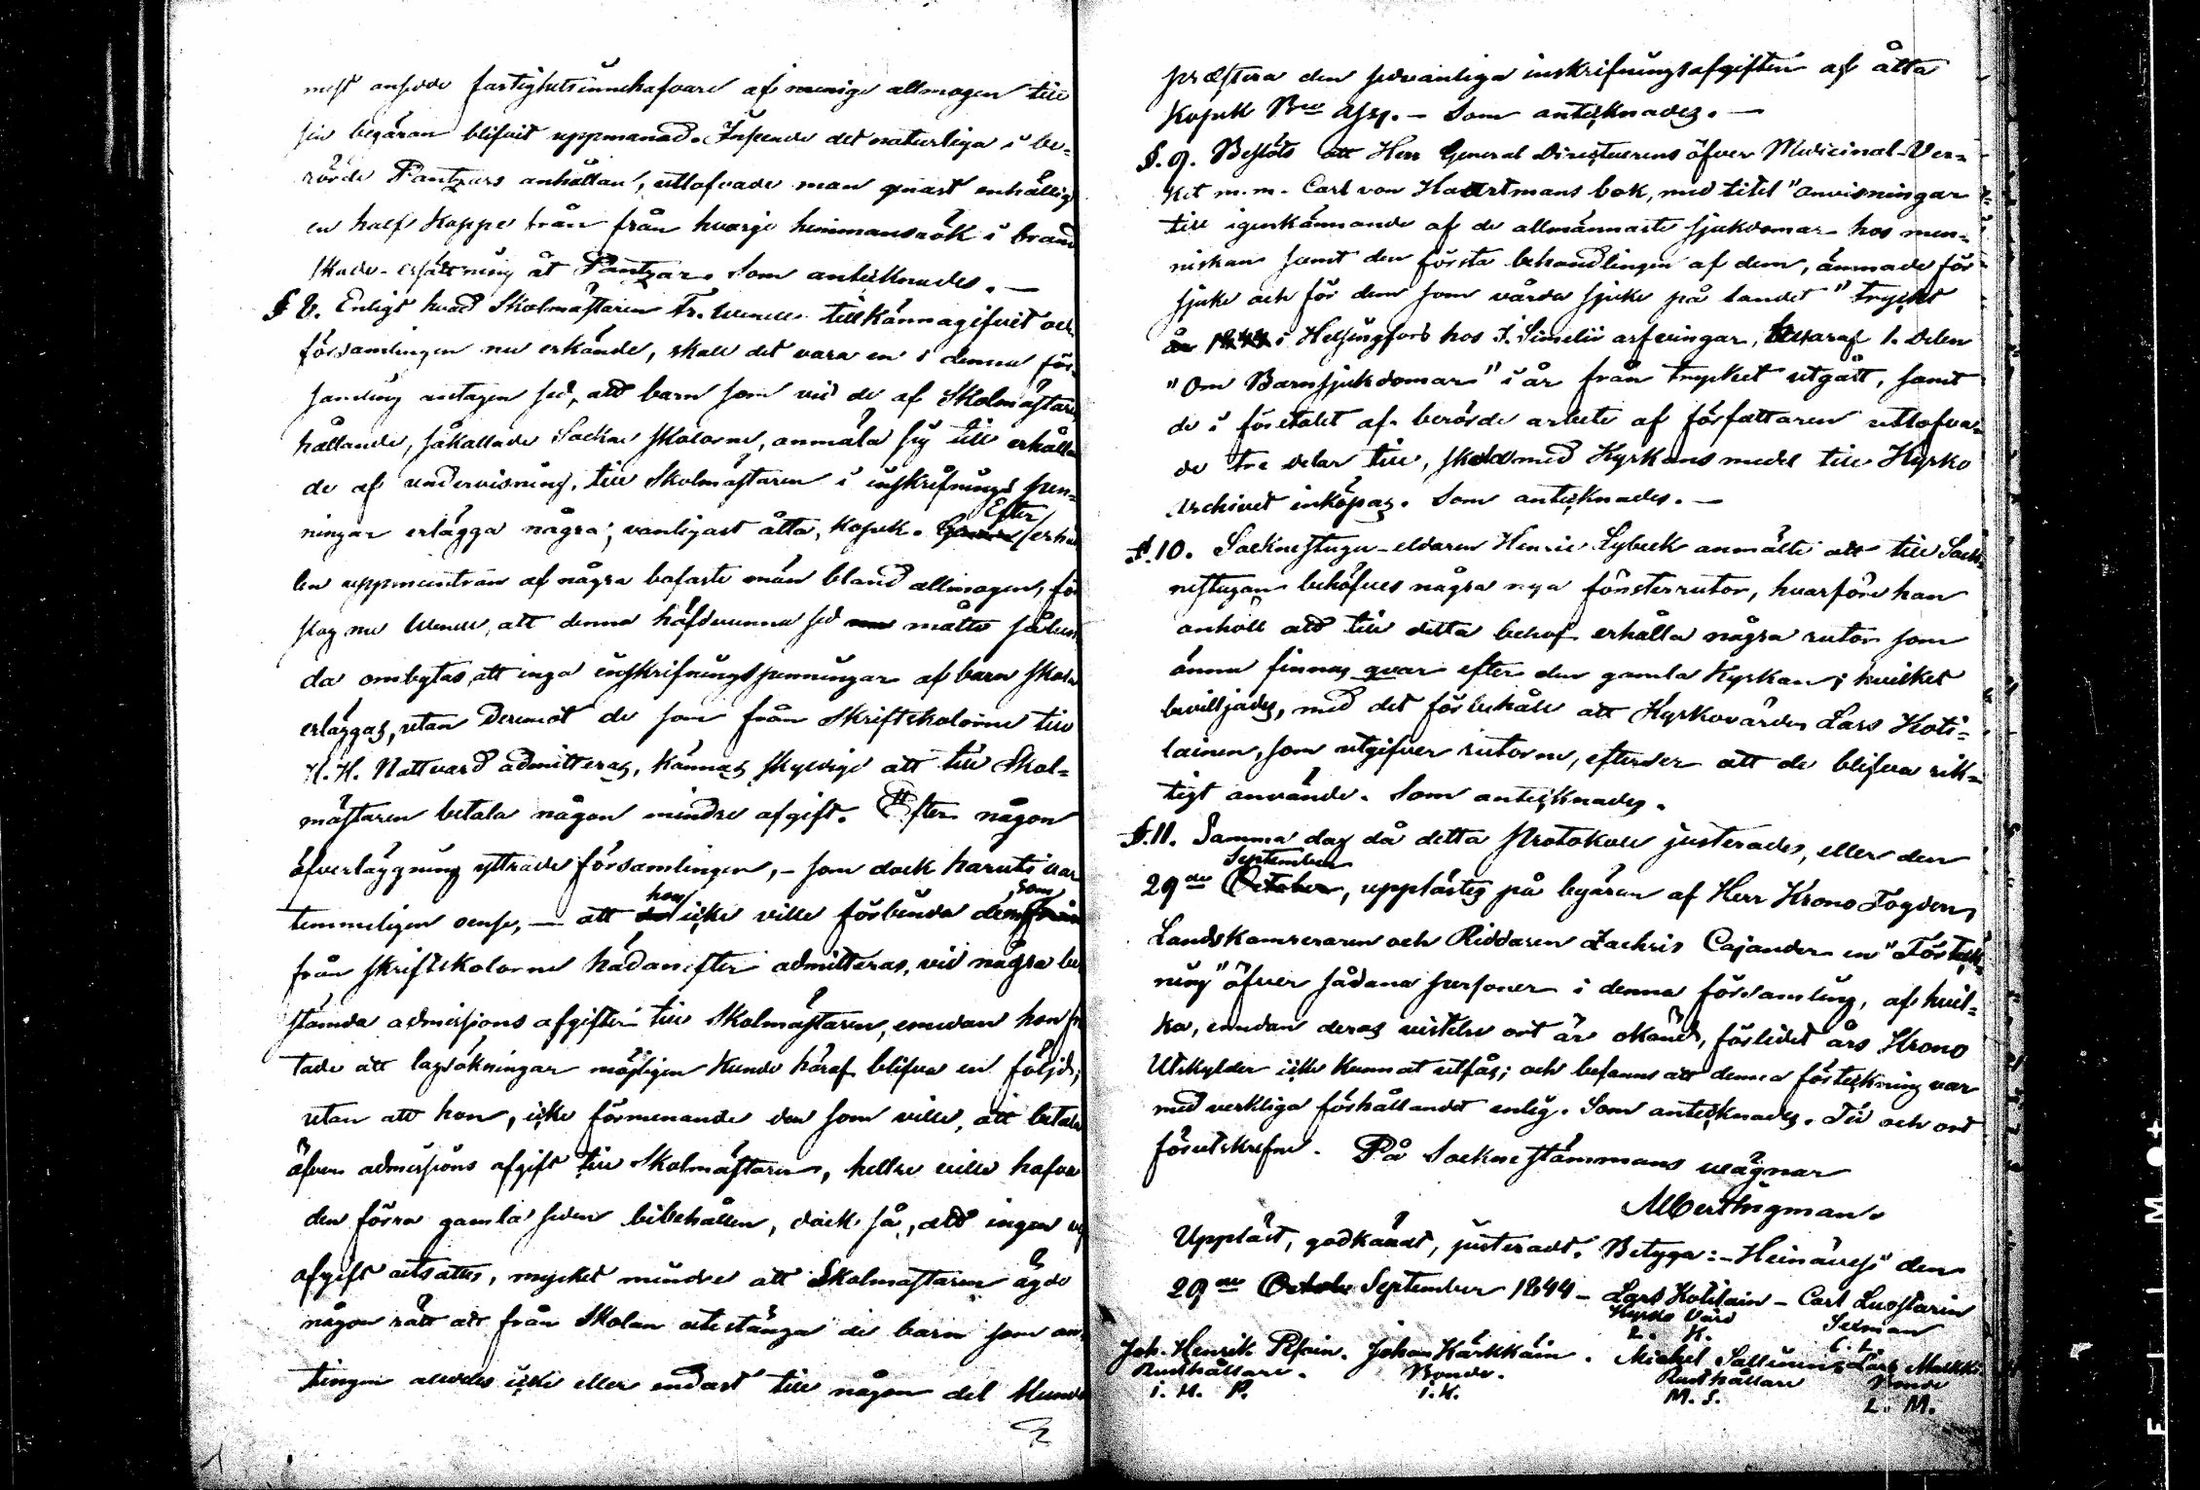 mest ansedde fastighetsinnehafvare af menige allmogen till
sin begäran blifvit uppmanad. Inseende det naturliga i be-
rörde Pantzars anhållan, utlofvade man genast enhällig
en half kappe från från hvarje hemmansrök i brand
skade-ersättning åt Pantzar. Som antecknades. —
§ 8. Enligt hvad Skolmästaren Fr. Wenell tillkännagifvit och
församlingen nu erkände, skall det vara en i denna för-
samling antagen sed, att barn som vid de af Skolmästare
hållande, såkallade Sockne skolorne, anmäla sig till erhållan
de af undervisning, till Skolmästaren i inskrifnings pen-
ningar erlägga några, vanligast åtta, kopek. Efter erhål
len uppmuntran af några bofaste män bland allmogen, för
slog nu Wenell, att denna häfdvunna sed måtte sålun
da ombytas, att inga inskrifningspenningar af barn skola
erläggas, utan deremot de som från Skriftskolorne till
H. H. Nattvard admitteras, kännas skyldige att till Skol-
mästaren betala någon mindre afgift. Efter någon
öfverläggning yttrade församlingen, – som dock häruti var
temmeligen oense, — att hon icke ville förbinda dem som
från skriftskolorne hädanefter admitteras, vid några be
stämda admissions afgifter till Skolmästaren, emedan hon fru
tade att lagsökningar möjligen kunde häraf blifva en följd;
utan att hon, icke förmenande den som ville, att betala
äfven admissions afgift till Skolmästaren, hellre ville hafva
den förra gamla seden bibehållen, dock så, att ingen viss
afgift utsattes, mycket mindre att Skolmästaren ägde
någon rätt att från Skolan utestänga de barn som an-
tingen alldeles icke eller endast till någon del kunde
præstera den sedvanliga inskrifningsafgiften af åtta
kopek Bco Assg. – Som antecknades. —
§. 9. Beslöts att Herr General Directeurens öfver Medicinal-Ver-
ket m.m. Carl von Haartmans bok, med titel "Anvisningar
till igenkännande af de allmännaste sjukdomar hos men-
niskan samt den första behandlingen af dem, ämnade för
sjuke och för dem som vårda sjuke på landet" tryckt
år 1844 i Helsingfors hos J. Simelii arfvingar, hvaraf 1. Delen
"Om Barnsjukdomar" i år från trycket utgått, samt
de i företalet af berörde arbete af författaren utlofva-
de tre delar till, skola med Kyrkans medel till Kyrko
Archivet inköpas. Som antecknades. —
§. 10. Socknestugu-eldaren Henric Lybeck anmälte att till Sock-
nestugan behöfves några nya fönsterrutor, hvarföre han
anhöll att till detta behof erhålla några rutor som
ännu finnas qvar efter den gamla Kyrkan; hvilket
beviljades, med det förbehåll att Kyrkovärden Lars Koti-
lainen, som utgifver rutorne, efterser att de blifva rik-
tigt använde. Som antecknades.
§. 11. Samma dag då detta Protokoll justerades, eller den
September
29de October, upplästes på begäran af Herr Krono Fogden,
Landskamreraren och Riddaren Zachris Cajander en "Förteck-
ning" öfver sådana personer i denna församling, af hvil-
ka, emedan deras vistelse ort är okänd, förledet års Krono
Utskylder icke kunnat utfås; och befanns att denna förteckning var
med verkliga förhållandet enlig. Som antecknades. Tid och ort
förutskrefne. På Sockne stämmans wägnar
Albert Ingman.
Uppläst, godkändt, justeradt. Betyga: – Heinävesi den
29de Octob September 1844 – Lars Kotilain – Carl Luostarin
Kyrko Värd Sexman
L. K. C. L.
Joh. Henrik Pesoin. Johan Kärkkäin. Michel Sallinen. Lars Malkki
Rusthållare. Bonde. Rusthållare Bonde
I. H. P. I. K. M. S. L. M.